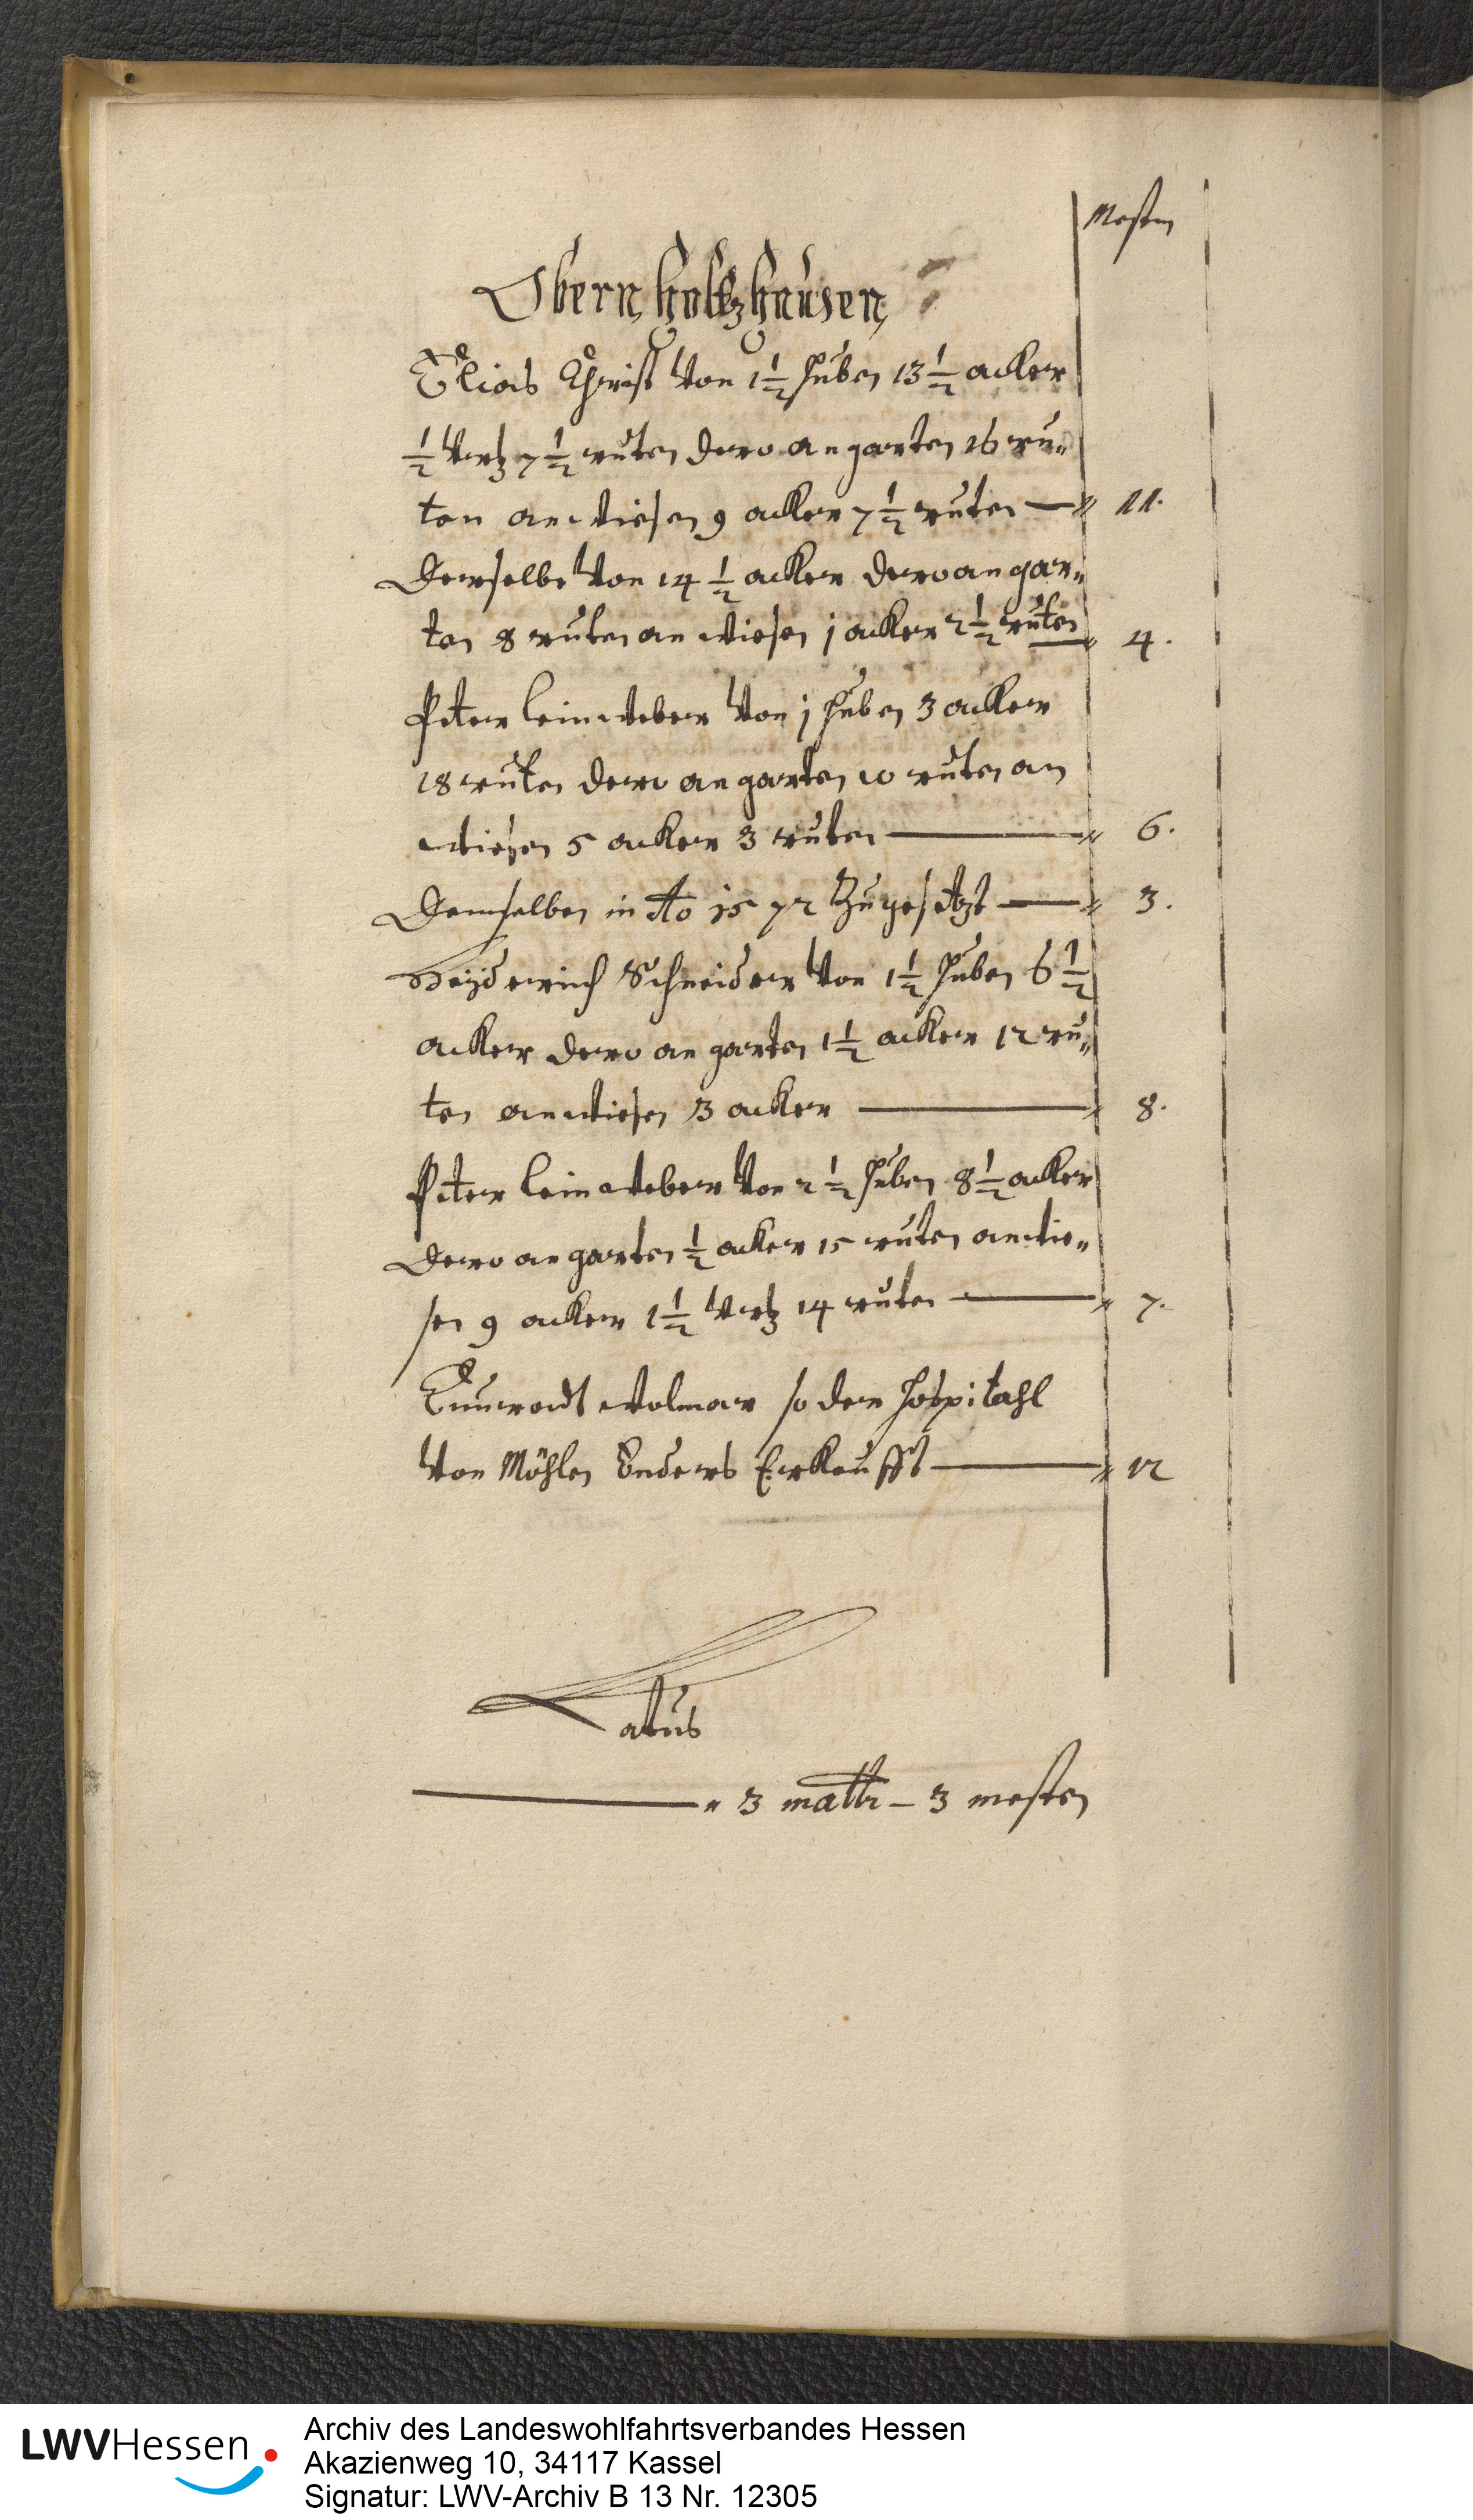 Mesten
Obern holtzhausen
Elias Christ von 1 1/2 huben 13 1/2 acker
1/2 vrtz 7 1/2 ruten dero an garten 16 ru„
ten an wiesen 9 acker 7 1/2 ruten — 11.
Derselbe von 14 1/2 acker dero an gar„
ten 8 ruten an wiesen j acker 2 1/2 ruten — 4.
Peter leinweber von j huben 3 acker
18 ruten dero an garten 10 ruten an
wiesen 5 acker 3 ruten — 6.
Demselben in Ao 1572 Zugesetzt — 3.
Heyderich Schneider von 1 1/2 huben 6 1/2
acker dero an garten 1 1/2 acker 12 ru„
ten an wiesen 3 acker — 8.
Peter leinweber von 2 1/2 huben 8 1/2 acker
Dero an garten 1/2 acker 15 ruten an wie„
sen 9 acker 1 1/2 vrtz 14 ruten — 7.
Cunradt Volmar so der hospitahl
von Möhlen Enders Erkaufft — 12
Latus
— 3 maltr – 3 mesten
LWVHessen
Archiv des Landeswohlfahrtsverbandes Hessen
Akazienweg 10, 34117 Kassel
Signatur: LWV-Archiv B 13 Nr. 12305